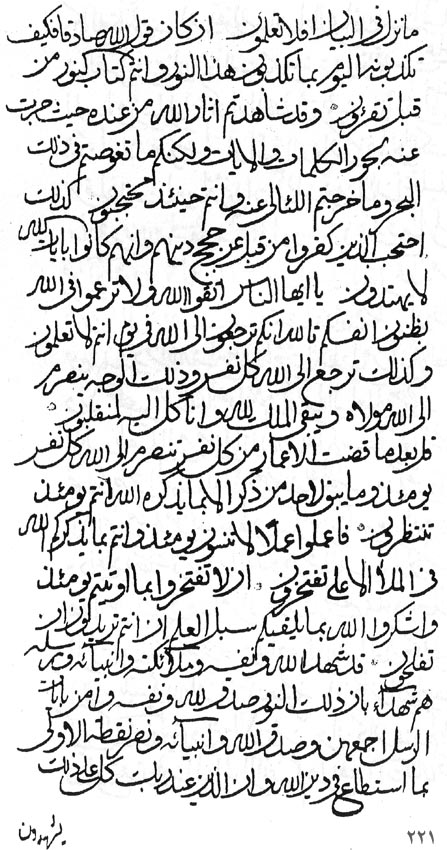 ما نزل فی البیان افلا تعلمون ان کان قول الله صادقا فکیف
تکذبونه الیوم بما تکذبون هذا النور وانتم کتاب کنور من
قبل تقرؤن وقد شاهدتم اثار الله من عنده حیث جرت
عنه بحور الکلمات والایات ولکنکم ما تغوصتم فی ذلک
البحر وما خرجتم اللئالی عنه وانتم حینئذ محتجبون کذلک
احتجب الذین کفروا من قبل عن حجج دینهم وانهم کانوا بایات الله
لا یهتدون یا ایها الناس اتقوا الله ولا ترعموا فی الله
بظنون انفسکم تالله انکم ترجعون الی الله فی یوم انتم لا تعلمون
وکذلک ترجع الی الله کل نفس وذلک الوجه ینصرم
الی الله مولاه ویبقی الملک لله وانا کل الیه لمنقلبون
قل بعد ما قضت الاعمار من کل نفس تنصرم الی الله کل نفس
یومئذ وما یبقی لاحد من ذکر الا بما یذکره الله انتم یومئذ
تنتظرون فاعملوا عملا لا تنسون یومئذ وانتم بما یذکرکم الله
فی الملأ الاعلی تفتخرون ان لا تفتخروا بما اوتیتم یومئذ
واشکروا الله بما یلقیکم سبل العلم ان انتم تریدون ان
تفلحون قد شهد الله ونفسه وملائکته وانبیائه ورسله
هم شهداء بان ذلک النور صدق لله ونفسه وآمن بایات
الرسل اجمعهن وصدق الله وانبیائه ونصر نقطه الاولی
بما استطاع فی دین الله وان الذین عند ربک کل علی ذلک
یشهدون
٢٢١